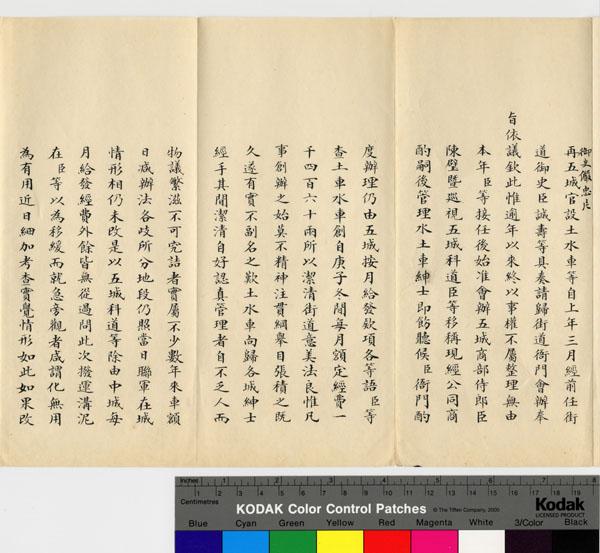 御史儼忠片
再五城官設土水車等自上年三月經前任街
道御史臣誠壽等具奏請歸街道衙門會辦奉
旨依議欽此惟邇年以來終以事權不屬整理無由
本年臣等接任後始准會辦五城商部侍郎臣
陳璧暨巡視五城科道臣等移稱現經公同商
酌嗣後管理水土車紳士即飭聽候臣衙門酌
度辦理仍由五城按月給發欵項各等語臣等
查土車水車創自庚子冬間每月額定經費一
千四百六十兩所以潔清街道意美法良惟凡
事創辦之始莫不精神注貫綱舉目張積之既
久遂有實不副名之歎土水車向歸各城紳士
經手其間潔清自好認真管理者自不乏人而
物議繁滋不可究詰者實屬不少數年來車額
日減辦法各歧所分地段仍照當日聯軍在城
情形相仍未改是以五城科道等除由中城每
月給發經費外餘皆無從過問此次撥運溝泥
在臣等以為移緩而就急旁觀者咸謂化無用
為有用近日細加考查實覺情形如此如果改
Inches 1 2 3 4 5 6 7 8
Centimetres 1 2 3 4 5 6 7 8 9 10 11 12 13 14 15 16 17 18 19
KODAK Color Control Patches © The Tiffen Company, 2000 Kodak
LICENSED PRODUCT
Blue Cyan Green Yellow Red Magenta White 3/Color Black